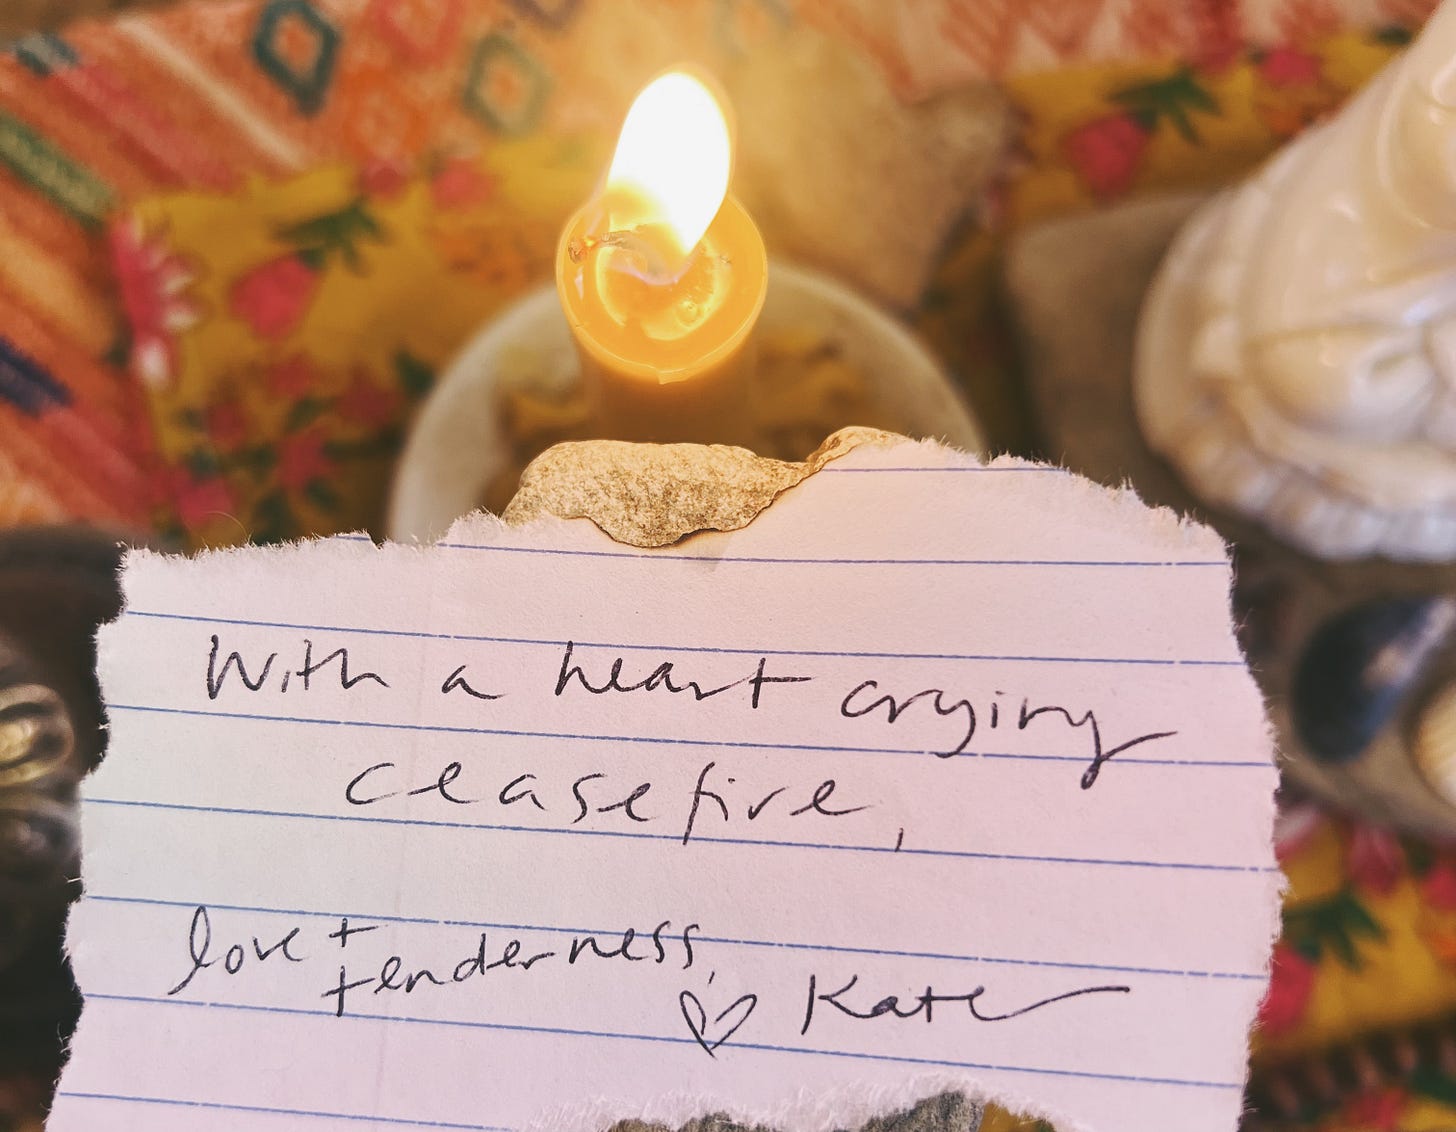 With a heart crying
ceasefire,
love +
tenderness,
♡ Kate